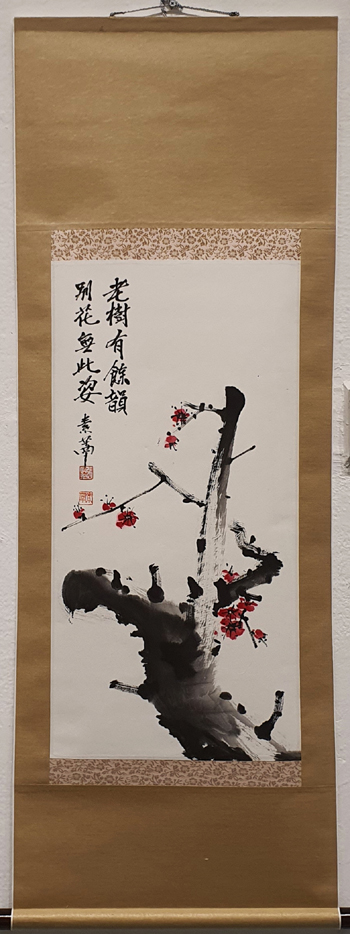 老樹有餘韻
別花無此姿